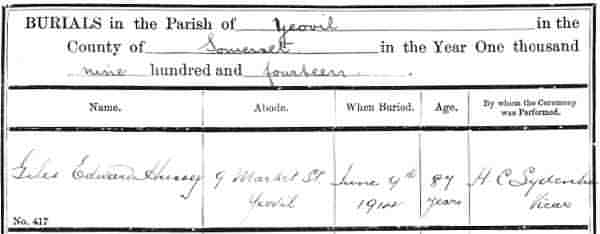 BURIALS in the Parish of Yeovil in the
County of Somerset in the Year One thousand
nine hundred and fourteen.
Name. Abode. When Buried. Age. By whom the Ceremony
was Performed.
Giles Edward Hussey 9 Market St. June 4th 87 H C Sydenham
Yeovil 1914 years Vicar
No. 417